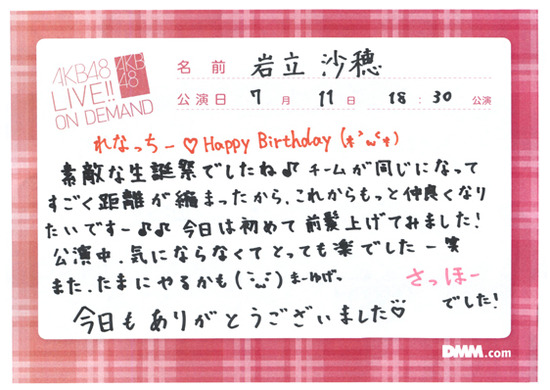 AKB48
LIVE!!
ON DEMAND
AKB
48
名前 岩立 沙穂
公演日 7月 11日 18:30 公演
れなっちー♡ Happy Birthday (*´ω`*)
素敵な生誕祭でしたね♪ チームが同じになって
すごく距離が縮まったから、これからもっと仲良くなり
たいですー♪♪ 今日は初めて前髪上げてみました!
公演中、気にならなくてとっても楽でした―笑
また、たまにやるかも (¨ω¨) まーゆげ。
さっほー
でした!
今日もありがとうございました♡
DMM.com